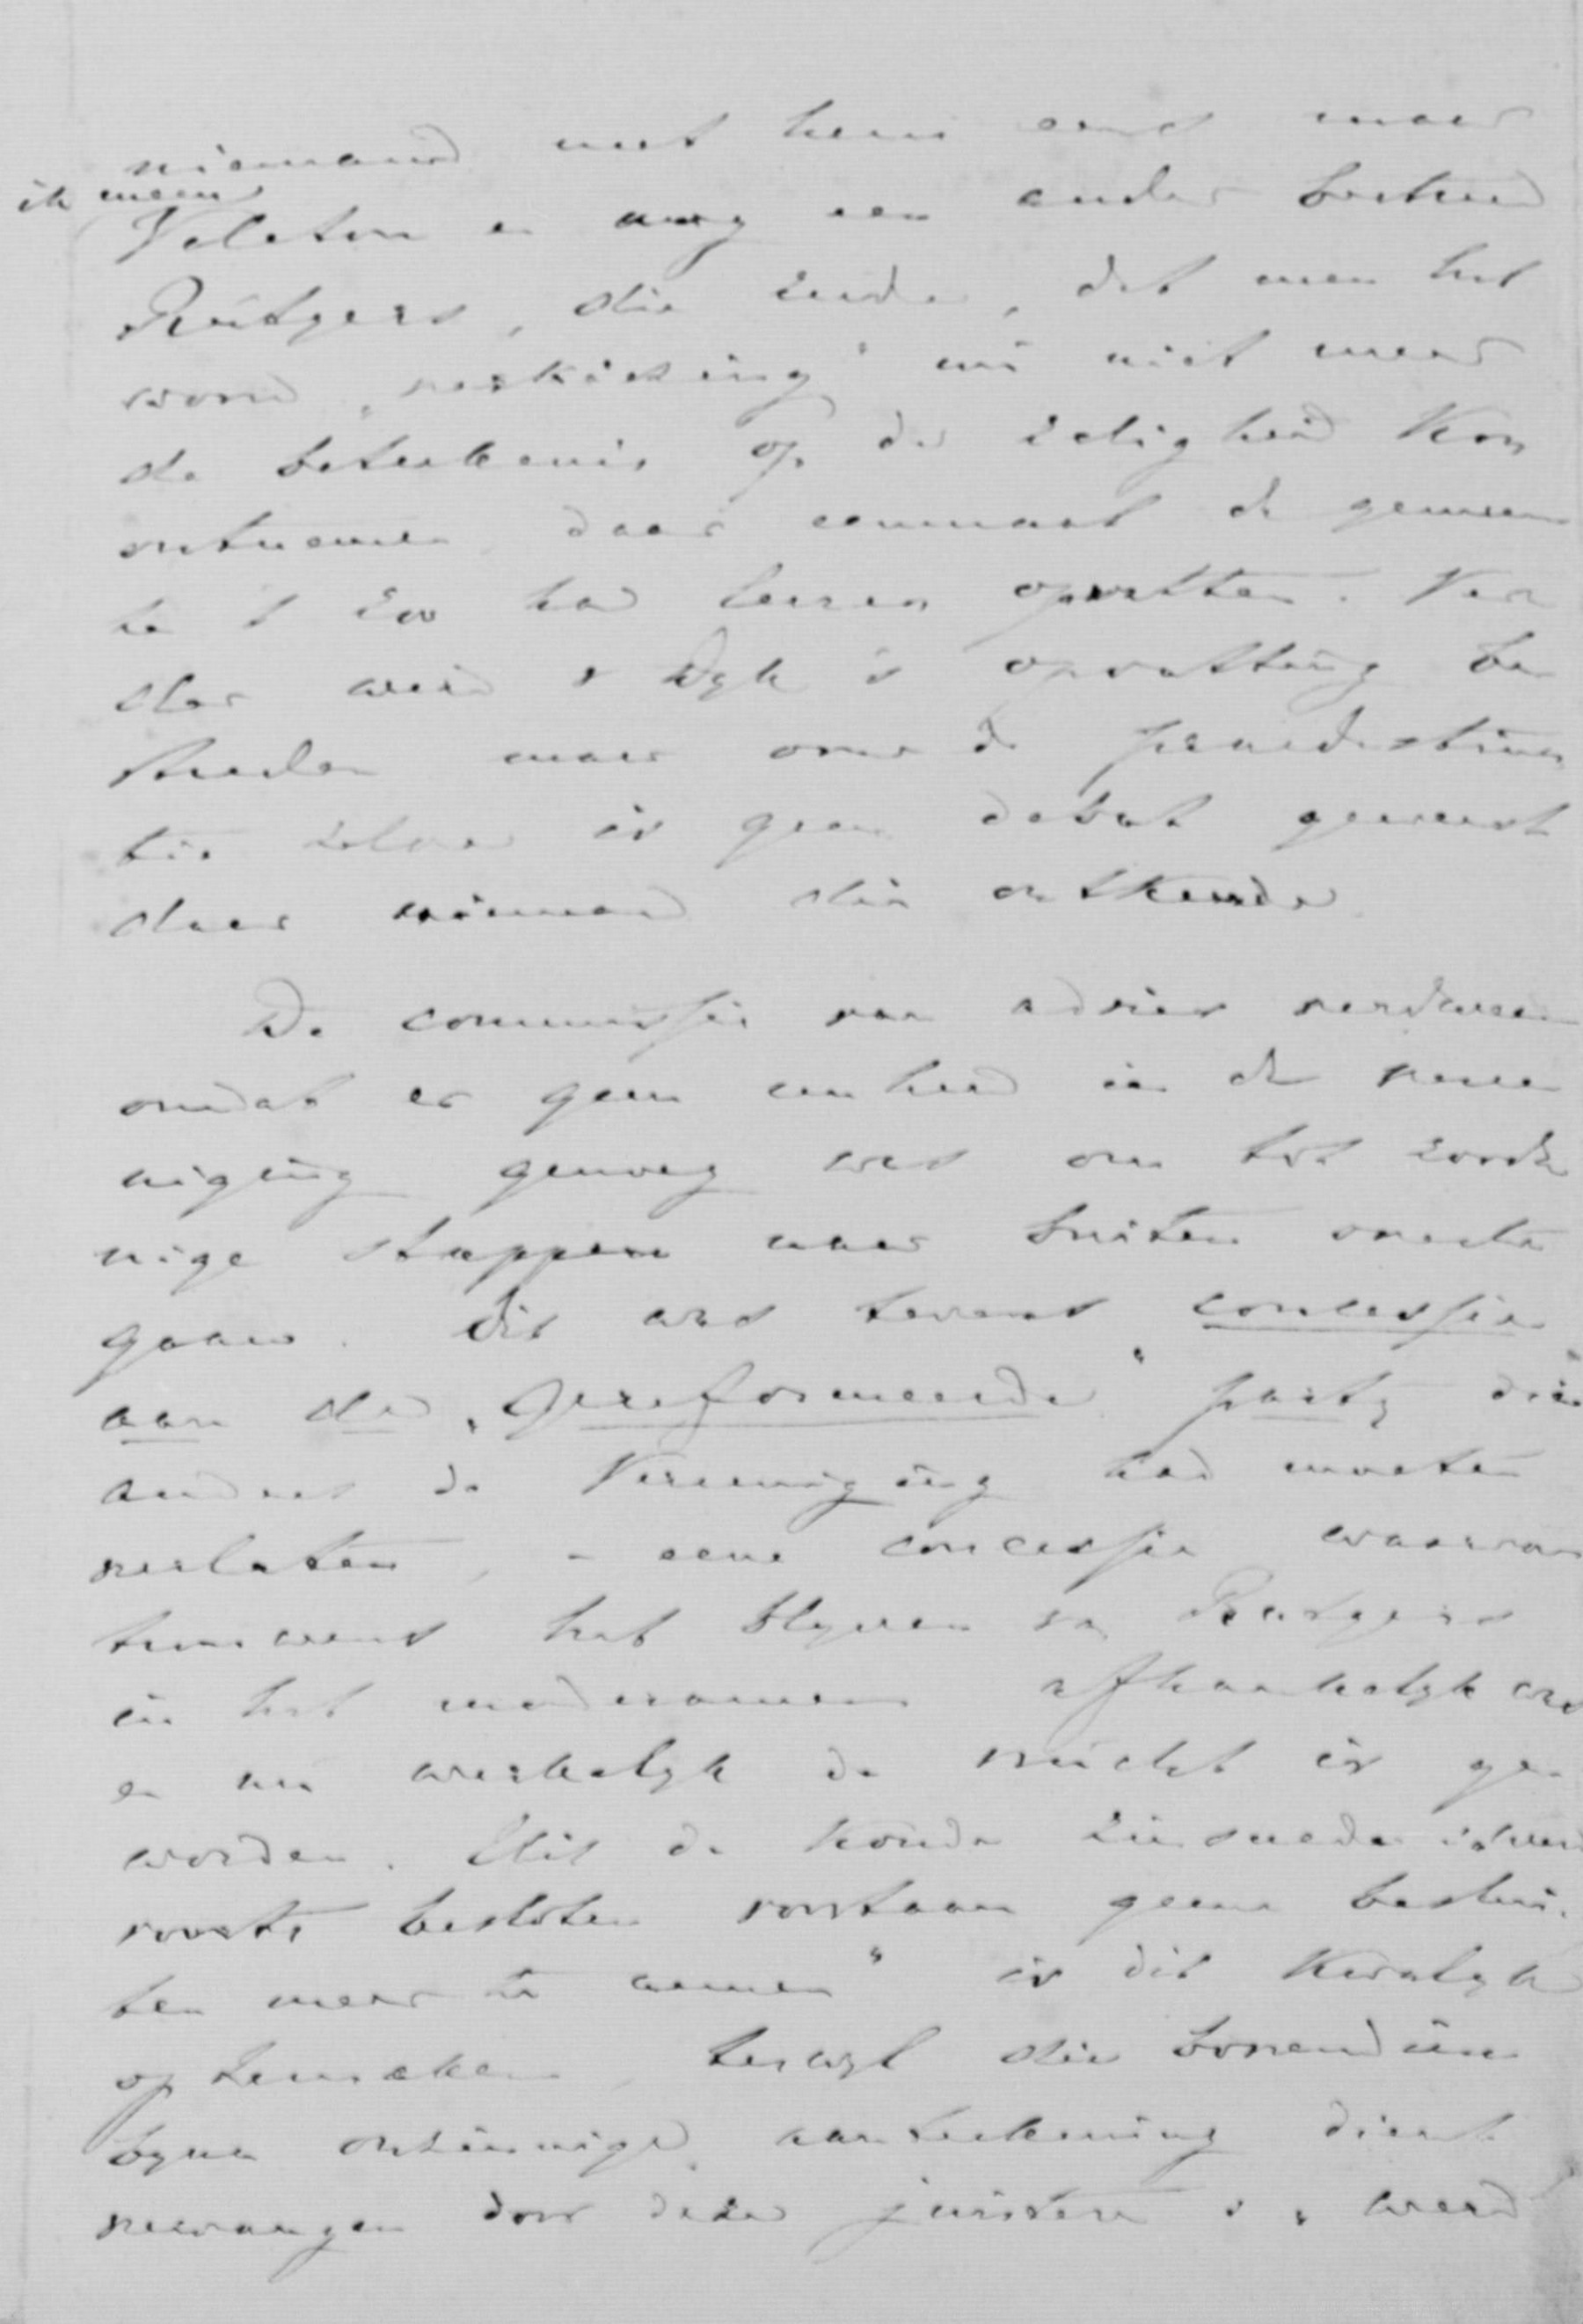 niemand met hem eens maar
ik meen
Valeton en nog een ander bestreed
Rutgers, die zeide, dat men het
woord "verkiezing" nu niet meer
de beteekenis op de zaligheid kon
ontnemen daar eenmaal de gemeen
te 't zoo had leeren opvatten. Ver
der werd v Dyk's opvatting be
streden maar over de praedestina
tie zelve is geen debat geweest
daar niemand die ontkende.
De commissie van advies verdween
omdat er geen eenheid in de veree
niging genoeg was om tot zooda
nige stappen naar buiten over te
gaan. Dit was tevens concessie
aan de "Gereformeerde" party die
anders de Vereeniging had moeten
verlaten, - eene concessie waarvan
trouwens het blyven van Rutgers
in het moderamen afhankelyk was
en nu werkelyk de vrucht is ge
worden. Uit de koude zinsnede
voorts besloten voortaan geene beslui
ten meer te nemen" is dit
op te maken, terwyl die bovendien
byna onzinnige aanteekening dient
vervangen door deze juistere: "werd